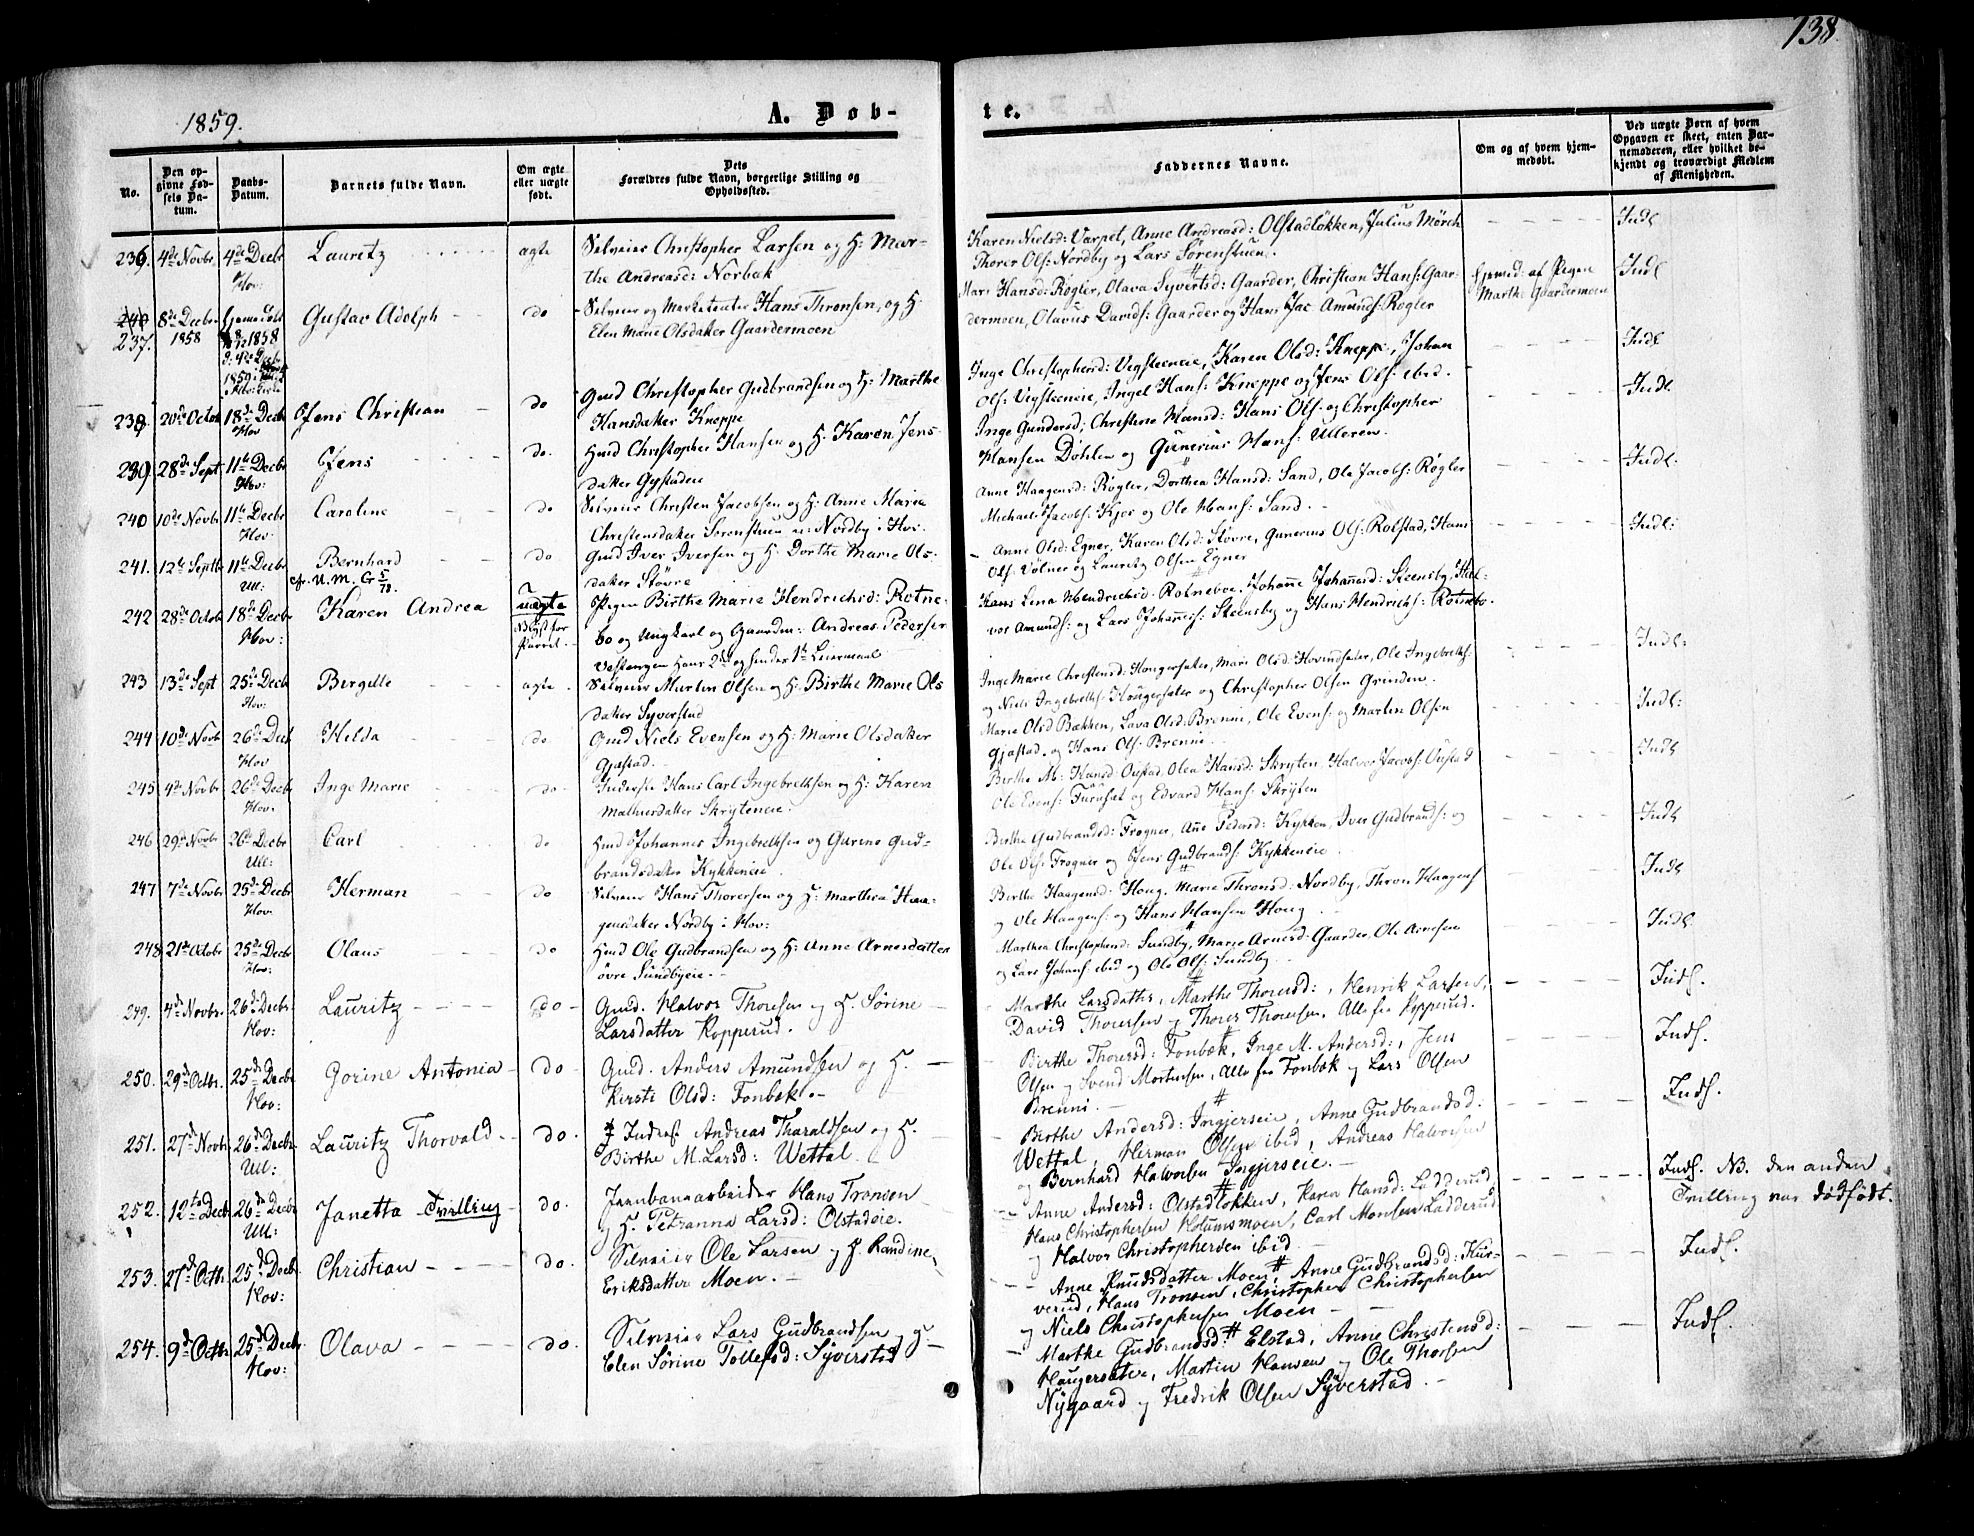 138.
1859.
A. Døb-
te.
No.
Den op-
givne Fød-
sels Da-
tum.
Daabs-
Datum.
Barnets fulde Navn.
Om ægte
eller uægte
født.
Dets
Forældres fulde Navn, borgerlige Stilling og
Opholdssted.
Faddernes Navne.
Om og af hvem hjem-
medøbt.
Ved uægte Børn af hvem
Opgaven er skeet, enten Bar-
nemoderen, eller hvilket be-
kjendt og troværdigt Medlem
af Menigheden.
236. 4de Novbr 4de Decbr Lauritz ægte Selveier Christopher Larsen og H: Mar-
Hov: the Andreasd: Norbæk
Karen Nielsd: Varpet, Anne Andreasd: Olstadløkken, Julius Mörch Indl
Thorer Ols: Nordby og Lars Sørenstuen.
237. 8de Decbr hjemmedøbt Gustav Adolph do Selveier og Marketenter Hans Thronsen, og H.
1858 1858 Elen Marie Olsdatter Gaardermoen
Mari Hansd: Røgler, Olava Syvertsd: Gaarder, Christian Hans: Gaar- hjemmed: af Pigen Indl
dermoen, Olavus Davids: Gaarder og Hans Jac Amunds: Røgler Marthe Gaardermoen
238 20de Octob 18de Decbr Jens Christian do Gmd Christopher Gudbrandsen og H: Marthe
Hov Hansdatter Kneppe
Inge Christophersd: Vegsteeneie, Karen Olsd: Kneppe, Johan Indl
Ols: Vegsteeneie, Ingel Hans: Kneppe og Jens Ols: ibid.
239 28de Sept 11te Decbr Jens do. Hmd Christopher Hansen og H. Karen Jens-
Hov: datter Gystadeie
Inge Gundersd; Christine Hansd: Hans Ols. og Christopher Indl
Hansen Döhlen og Gunerius Hans: Ulleren.
240 10de Novbr 11te Decbr Caroline do Selveier Christen Jacobsen og H: Anne Maria
Hov: Christensdatter Sørenstuen av: Nordby i Hov.
Anne Haagensd: Røgler, Dorthea Hansd: Sand, Ole Jacobs: Røgler Indl.
Michael Jacobs: Kjos og Ole Hans: Sand.
241. 12te Septb 11te Decbr Bernhard do Gmd Iver Iversen og H. Dorthe Marie Ols-
Ull: datter Støvre
Anne Olsd: Egner, Karen Olsd: Støvre, Gunerius Ols: Rolstad, Hans Indl:
Ols: Vølner og Lauritz Olsen Egner
242 28de Octob 18de Decbr Karen Andrea uægte Pigen Birthe Marie Hendrichsd: Rotne-
Hov: bo og Ungkarl og Gaardm: Andreas Pedersen
Vestengen hans 2det og hendes 1te Leiermaal
Hans Lena Hendrichsd: Rotneboe, Johanne Johannesd: Steensby, Hal-
vor Amunds: og Lars Johannes: Steensby og Hans Hendrichs: Rotnebo.
243 13de Sept 25de Decbr Bergitte ægte. Selveier Martin Olsen og H: Birthe Marie Ols
Hov: datter Syverstad
Inge Marie Christensd: Hougersæter, Mari Olsd: Hovindsæter, Ole Ingebreths: Indl:
og Niels Ingebreths: Hougersæter og Christopher Olsen Grinden.
244 10de Novb 26de Decb Helda do Gmd Niels Evensen og H: Marie Olsdatter
Hov Gjøstad.
Marie Olsd Bækken, Lava Olsd: Brenni, Ole Evens: og Martin Olsen Indl:
Gjøstad. og Hans Ols: Brenni.
245 4de Novbr 26de Decbr Inge Marie do Inderste Hans Carl Ingebrethsen og H: Karen
Hov. Mathiesdatter Skryteneie.
Birthe M: Hansd: Oustad, Olea Hansd: Skryten, Halvor Jacobs: Oustad Indl
Ole Evens: Furuset og Edvard Hans: Skryten
246 29de Novbr 26de Decbr Carl do Hmd Johannes Ingebrethsen og Gurine Gud-
Ull: brandsdatter Kykkeneie
Birthe Gudbrandsd: Trogner, Ane Pedersd: Kykken, Iver Gudbrands: og Indl
Ole Ols: Trogner og Jens Gudbrands: Kykkeneie
247 7de Novbr 25de Decbr Herman do Selveier Hans Thorersen og H: Marthea Haa-
Hov gensdatter Nordby i Hov:
Birthe Haagensd: Houg, Marie Thronsd: Nordby, Thron Haagens Indl
og Ole Haagens: og Hans Hansen Houg
248 21de Octobr 25de Decbr Olaus do Hmd Ole Gudbrandsen og H: Anne Arnesdatter
Hov: övre Sundbyeie.
Marthea Christophersd: Sundby, Marie Arnesd: Gaarder, Ole Arnesen Indl.
og Lars Johans: ibid og Ole Ols: Sundby.
249. 4de Novbr. 26de Decbr. Lauritz do Gmd. Halvor Thoresen og H. Sørine
Hov: Larsdatter Kopperud.
Marthe Larsdatter, Marthe Thorersd:, Henrik Larsen, Indl.
David Thorersen og Thorer Thoresen, Alle fra Kopperud.
250. 29de Octbr. 25de Decbr Gorine Antonia do Gmd. Anders Amundsen og H.
Hov: Kirsti Olsd: Fonbæk.
Birthe Thorersd: Fonbæk, Inge M. Andersd:, Jens Indl.
Olsen og Svend Mortensen, Alle fra Fonbæk og Lars Olsen
Brenni.
251. 27de Novbr 26de Decbr. Lauritz Thorvald do. Inderst Andreas Tharaldsen og H.
Ull: Birthe M. Larsd: Wettal
Birthe Andersd: Ingjerseie, Anne Gudbrandsd. Indl.
Wettal, Herman Olsen ibid, Andreas Halvorsen
og Bernhard Halvorsen Ingjerseie.
252. 12te Decbr 26de Decbr Janetta Tvilling do. Jernbanearbeider Hans Tronsen
Ull: og H. Petranna Larsd: Olstadeie.
Anne Andersd: Olstadløkken, Karen Hansd: Ladderud, Indl. NB. den anden
Hans Christophersen Holumsmoen, Carl Monsen Ladderud Tvilling var dødfødt.
og Halvor Christophersen ibid
253. 27de Octbr. 25de Decbr Christian do. Selveier Ole Larsen og H. Randine
Hov: Eriksdatter Moen.
Anne Knudsdatter Moen, Anne Gudbrandsd: Kur- Indl.
verud, Hans Tronsen, Christopher Christophersen
og Niels Christophersen Moen
254. 9de Octbr. 25de Decbr Olava do. Selveier Lars Gudbrandsen og H.
Hov: Elen Sørine Tollefsd: Syverstad
Marthe Gudbrandsd: Elstad, Anne Christensd: Indl.
Haugersæter, Martin Hansen og Ole Thorsen
Nygaard og Fredrik Olsen Syverstad.